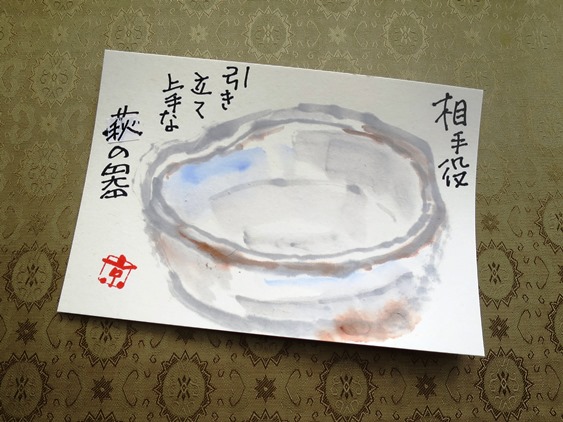 相手役
引き
立て
上手な
萩の器
京